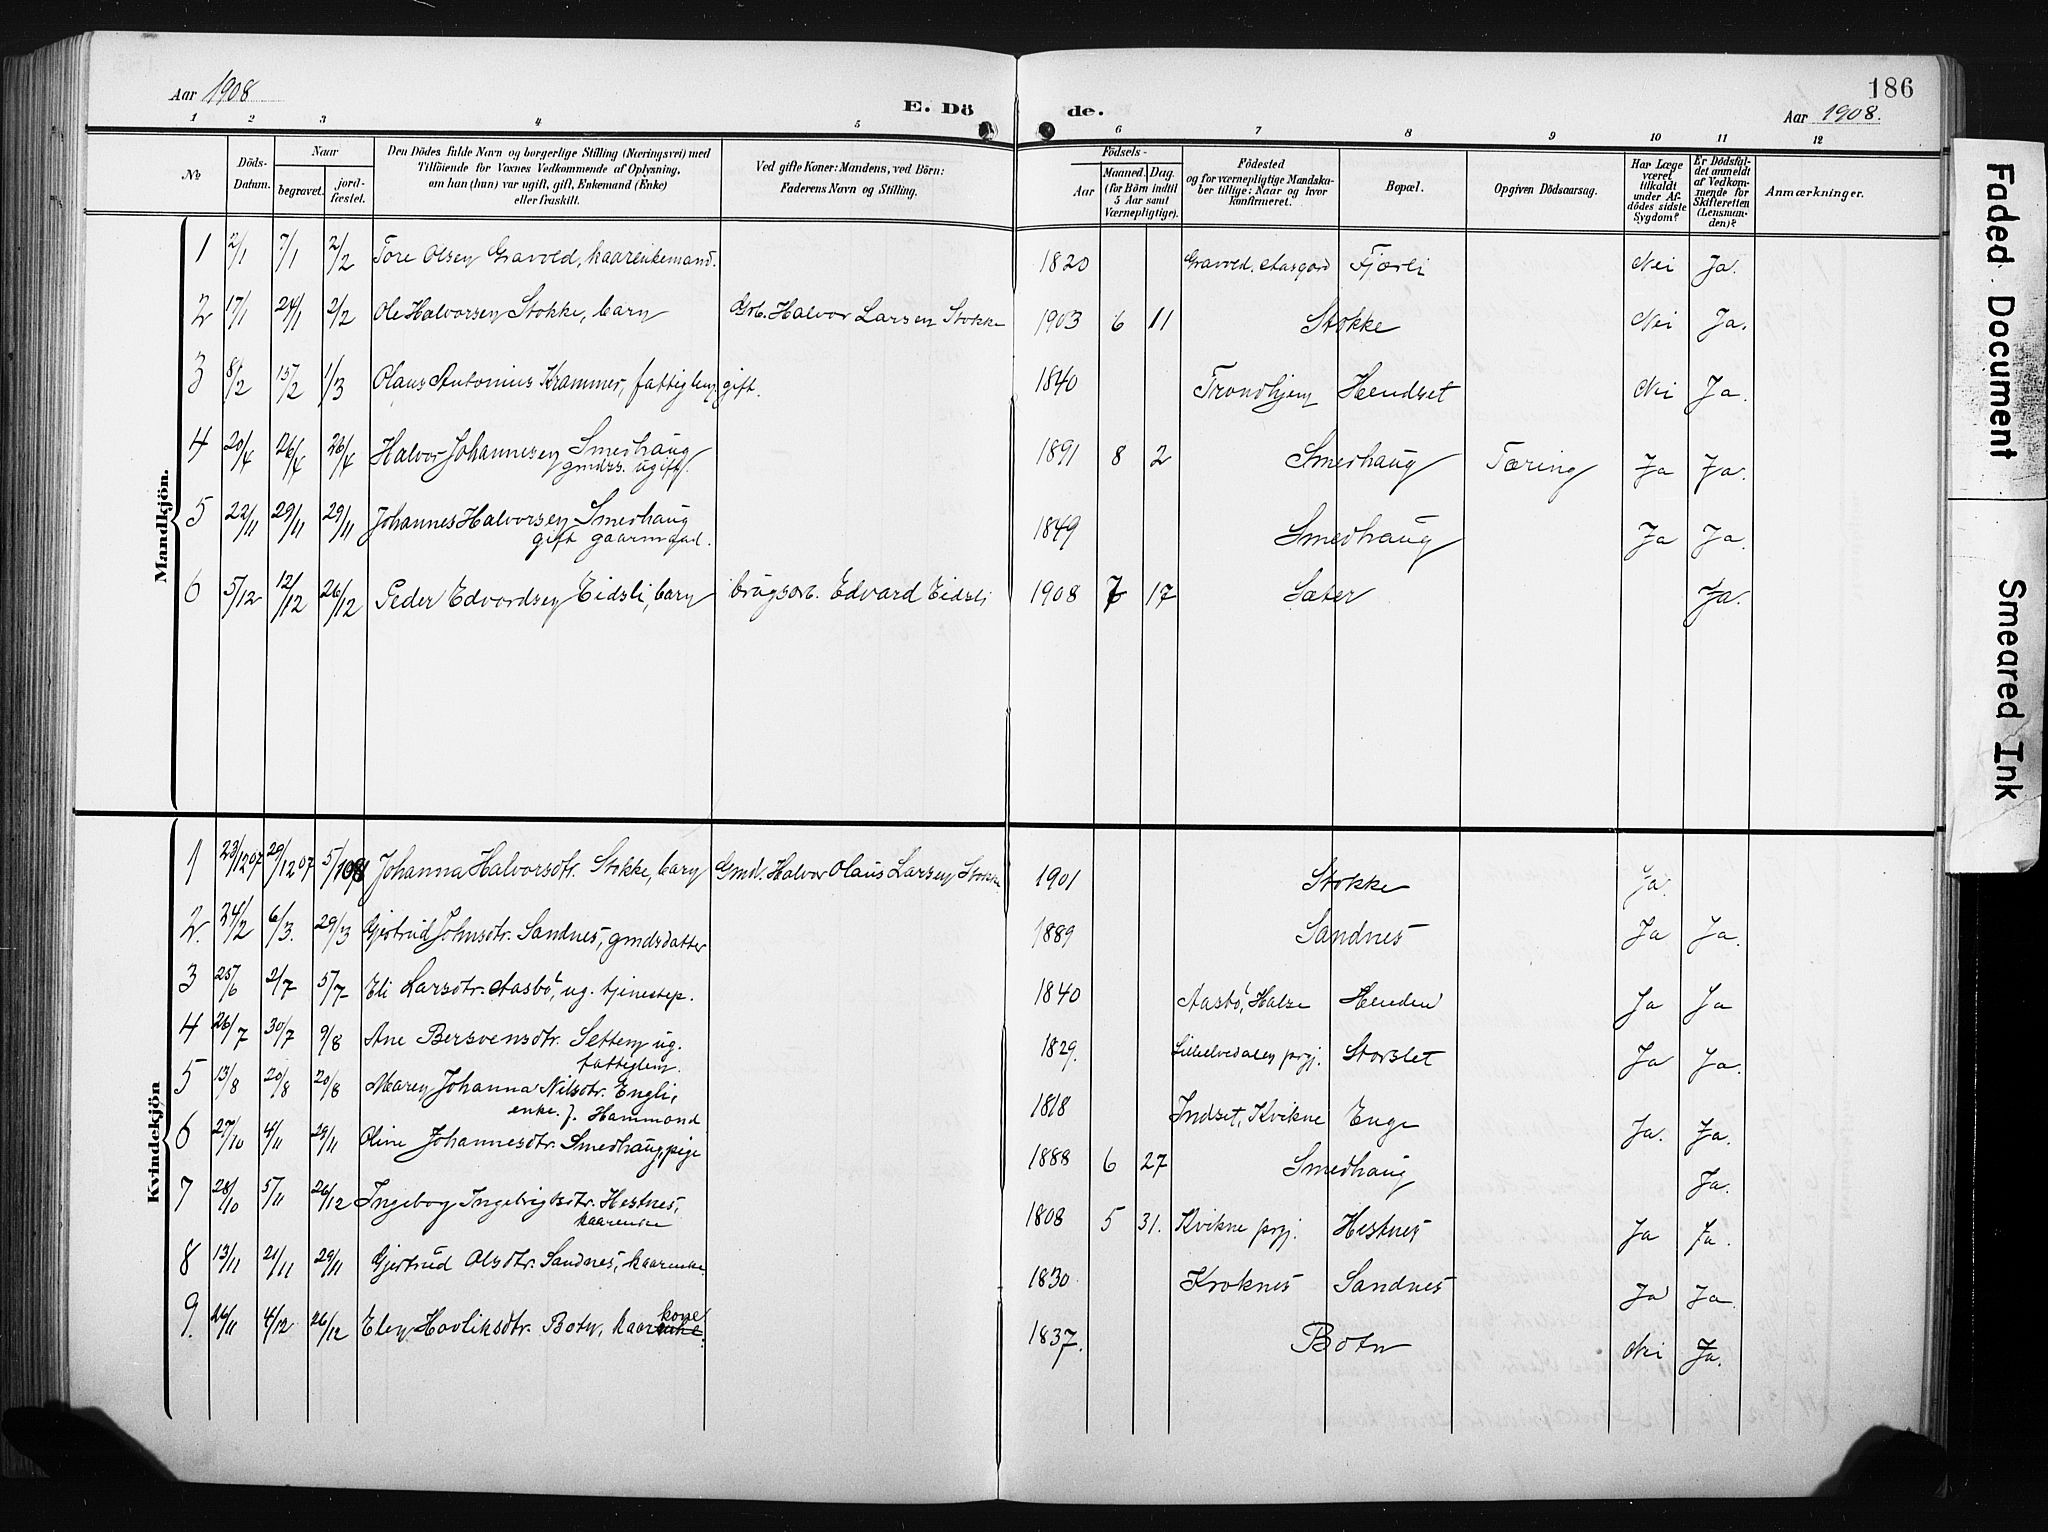 Aar 1908
E. Döde.
186
Aar 1908.
1 2 3 4 5 6 7 8 9 10 11 12
No
Döds-Datum.
Naar
begravet.
jord-fæstet.
Den Dödes fulde Navn og borgerlige Stilling (Næringsvei) med
Tilföiende for Voxnes Vedkommende af Oplysning,
om han (hun) var ugift, gift, Enkemand (Enke)
eller fraskilt.
Ved gifte Koner: Mandens, ved Börn:
Faderens Navn og Stilling.
Födsels-
Aar
Maaned. Dag.
(for Börn indtil
5 Aar samt
Værnepligtige).
Födested
og for værnepligtige Mandska-
ber tillige: Naar og hvor
konfirmeret.
Bopæl.
Opgiven Dödsaarsag.
Har Læge
været
tilkaldt
under Af-
dödes sidste
Sygdom?
Er Dödsfal-
det anmeldt
af Vedkom-
mende for
Skifteretten
(Lensman-
den)?
Anmærkninger.
Mandkjön.
1 2/1 7/1 2/2 Tore Olsen Gravold, kaarenkemand. 1820 Gravvold, Aasgard Fjærli Nei Ja.
2 17/1 24/1 2/2 Ole Halvorsen Stokke, barn Gbr. Halvor Larsen Stokke 1903 6 11 Stokke Nei Ja.
3 8/2 15/2 1/3 Olaus Antonius Krammer, fattiglem, gift. 1840 Trondhjem Hendset Nei Ja.
4 20/4 26/4 26/4 Halvor Johannesen Smedhaug 1891 8 2 Smedhaug Tæring Ja Ja.
gmdss. ugift.
5 22/11 29/11 29/11 Johannes Halvorsen Smedhaug 1849 Smedhaug Ja Ja.
gift gaarmand.
6 5/12 12/12 26/12 Peder Edvardsen Eidsli, barn brugsbr. Edvard Eidsli 1908 7 17 Sæter Ja.
Kvindekjön
1 23/12 07 29/12 07 5/1 08 Johanna Halvorsdtr. Stokke, barn Gmd. Halvor Olaus Larsen Stokke 1901 Stokke Ja.
2. 24/2 6/3. 29/3 Gjertrud Johnsdtr. Sandnes, gmdsdatter 1889 Sandnes Ja Ja.
3 25/6 2/7 5/7 Eli Larsdtr. Aasbö, ug. tjenestep. 1840 Aasbö, Halse Henden Ja Ja
4 26/7 30/7 9/8 Ane Bersvensdtr. Settem ug. 1829. Lilleelvedalen prgj. Storslet Ja Ja.
fattiglem.
5 13/8 20/8 20/8 Maren Johanna Nilsdtr. Engli, 1818 Indset, Kvikne Enge Ja. Ja.
enke. f. Hammond
6 27/10 4/11 29/11 Oline Johannesdtr. Smedhaug, pige 1888 6 27 Smedhaug Ja.
7 28/10 5/11 26/12 Ingebor Ingebrigtsdtr. Hestnes, 1808 5 31. Kvikne prgj. Hestnes Ja Ja.
kaarenke
8 13/11 21/11 29/11 Gjertrud Olsdtr. Sandnes, kaarenke. 1830 Kroknes Sandnes Ja Ja
9. 26/11 4/12 26/12 Elen Havliksdtr. Botn, kaarkone 1837. Botn Nei Ja.
Faded Document
Smeared Ink